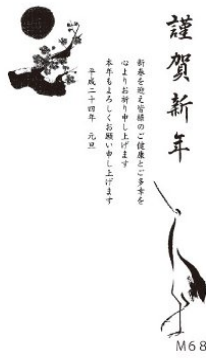 謹賀新年
新春を迎え皆様のご健康とご多幸を
心よりお祈り申し上げます
本年もよろしくお願い申し上げます
平成二十四年　元旦
M68